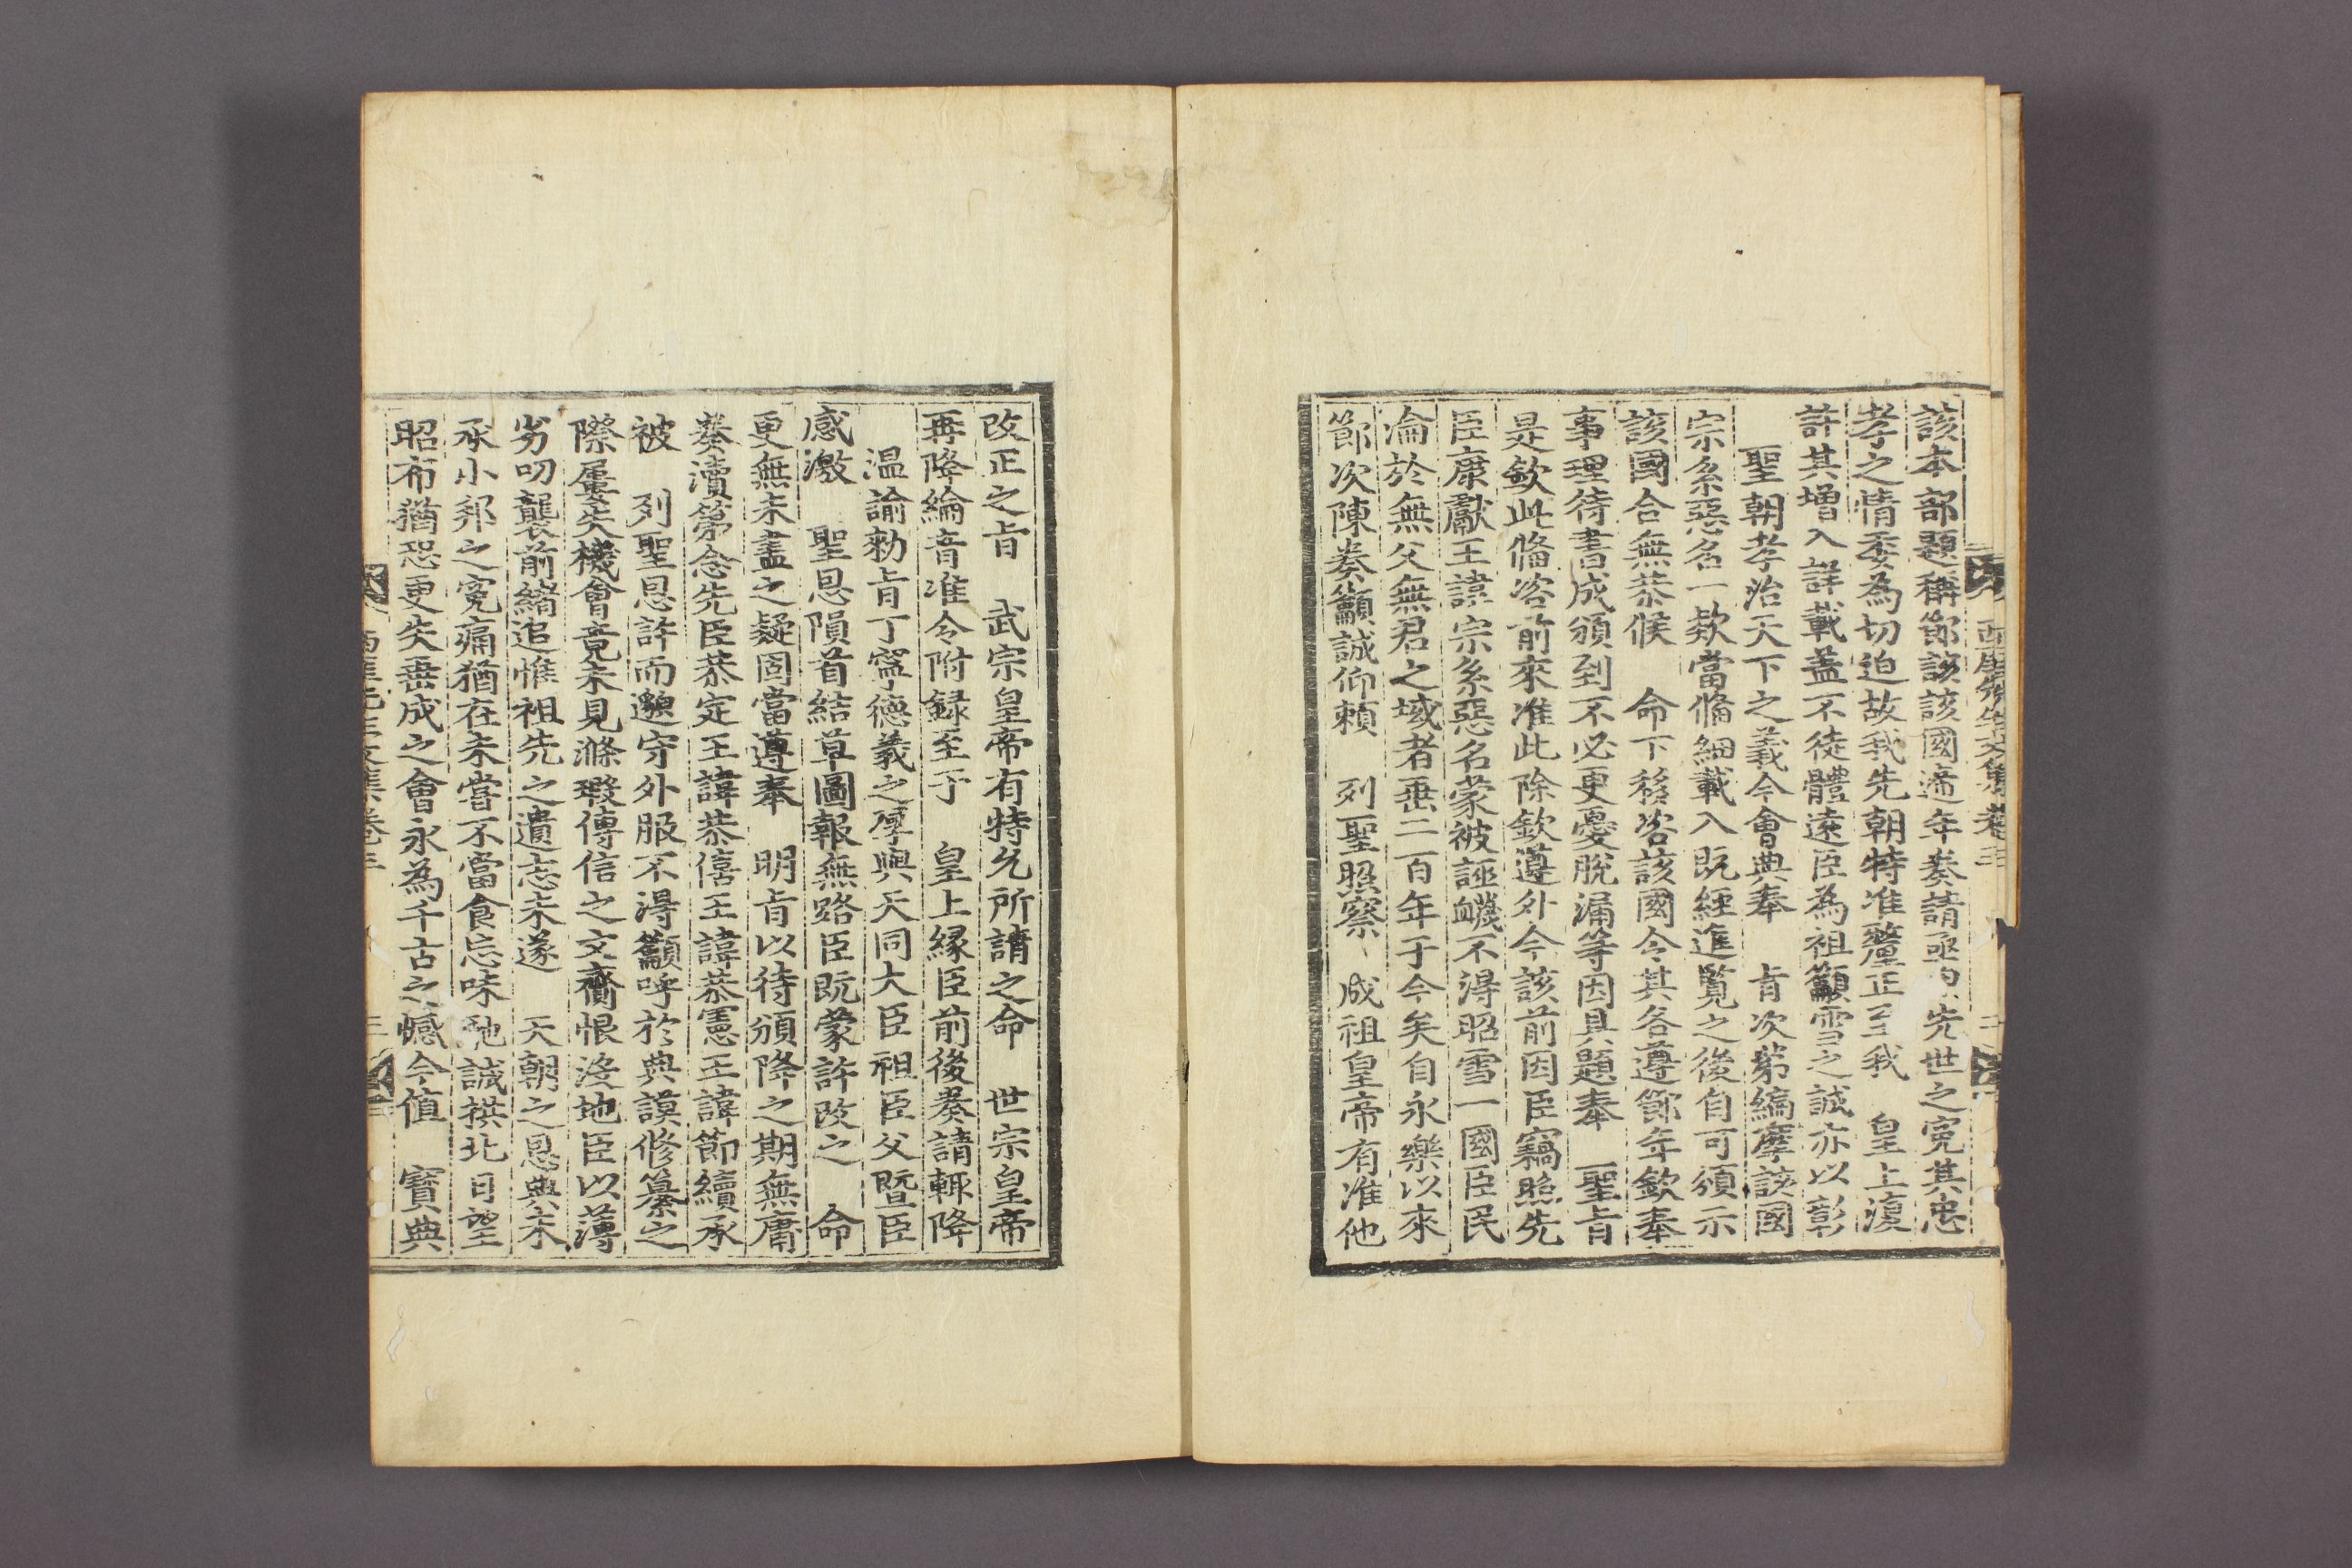 西厓先生文集卷三 二
該本部題稱節該該國連年奏請亟為先世之寃其忠
孝之情委為切迫故我先朝特准釐正至我 皇上復
許其增入詳載盖不徒體遠臣為祖籲雪之誠亦以彰
聖朝孝治天下之義今會典奉 旨次第編摩該國
宗系惡名一欵當備細載入旣經進覽之後自可頒示
該國合無恭候 命下移咨該國令其各遵節年欽奉
事理待書成頒到不必更憂脫漏等因具題奉 聖旨
是欽此備咨前來准此除欽遵外今該前因臣竊照先
臣康獻王諱宗系惡名蒙被誣衊不得昭雪一國臣民
淪於無父無君之域者垂二百年于今矣自永樂以來
節次陳奏籲誠仰賴 列聖照察 成祖皇帝有准他
改正之旨 武宗皇帝有特允所請之命 世宗皇帝
再降綸音准令附録至于 皇上緣臣前後奏請輒降
溫諭勑旨丁寧德義之厚與天同大臣祖臣父曁臣
感激 聖恩隕首結草圖報無路臣旣蒙許改之 命
更無未盡之疑固當遵奉 明旨以待頒降之期無庸
奏瀆第念先臣恭定王諱恭僖王諱恭憲王諱節續承
被 列聖恩許而邈守外服不得籲呼於典謨修纂之
際屢失機會竟未見滌瑕傳信之文齎恨沒地臣以薄
劣叨襲前緖追惟祖先之遺志未遂 天朝之恩典未
承小邦之寃痛猶在未嘗不當食忘味馳誠拱北日望
昭布猶恐更失垂成之會永為千古之憾今値 寶典
西厓先生文集卷三 三